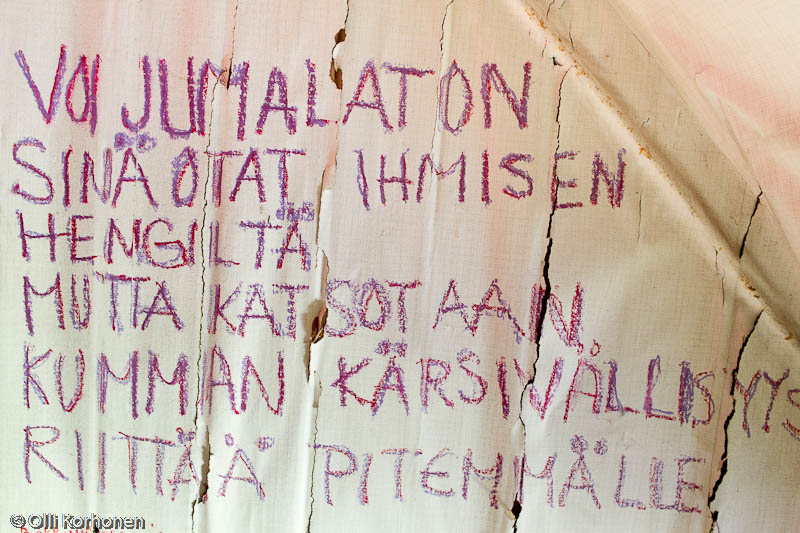 VOI JUMALATON
SINÄ OTAT IHMISEN
HENGILTÄ
MUTTA KATSOTAAN
KUMMAN KÄRSIVÄLLISYYS
RIITTÄÄ PITEMMÄLLE
© Olli Korhonen